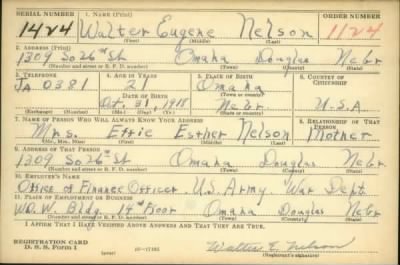 SERIAL NUMBER 1. NAME (Print) ORDER NUMBER
1424 Walter Eugene Nelson 1124
(First) (Middle) (Last)
2. ADDRESS (Print)
1309 So 26th St Omaha Douglas Nebr
(Number and street or R. F. D. number) (Town) (County) (State)
3. TELEPHONE 4. AGE IN YEARS 5. PLACE OF BIRTH 6. COUNTRY OF CITIZENSHIP
JA 0381 21 Omaha
DATE OF BIRTH (Town or county)
Oct. 31, 1918 Nebr U.S.A
(Exchange) (Number) (Mo.) (Day) (Yr.) (State or country)
7. NAME OF PERSON WHO WILL ALWAYS KNOW YOUR ADDRESS 8. RELATIONSHIP OF THAT PERSON
Mrs. Effie Esther Nelson Mother
(Mr., Mrs., Miss) (First) (Middle) (Last)
9. ADDRESS OF THAT PERSON
1309 So 26th St Omaha Douglas Nebr
(Number and street or R. F. D. number) (Town) (County) (State)
10. EMPLOYER'S NAME
Office of Finance Officer U.S. Army War Dept.
11. PLACE OF EMPLOYMENT OR BUSINESS
W.O.W. Bldg. 14th Floor Omaha Douglas Nebr
(Number and street or R. F. D. number) (Town) (County) (State)
I AFFIRM THAT I HAVE VERIFIED ABOVE ANSWERS AND THAT THEY ARE TRUE.
REGISTRATION CARD
D. S. S. Form 1 (over) Walter E. Nelson
(Registrant's signature)